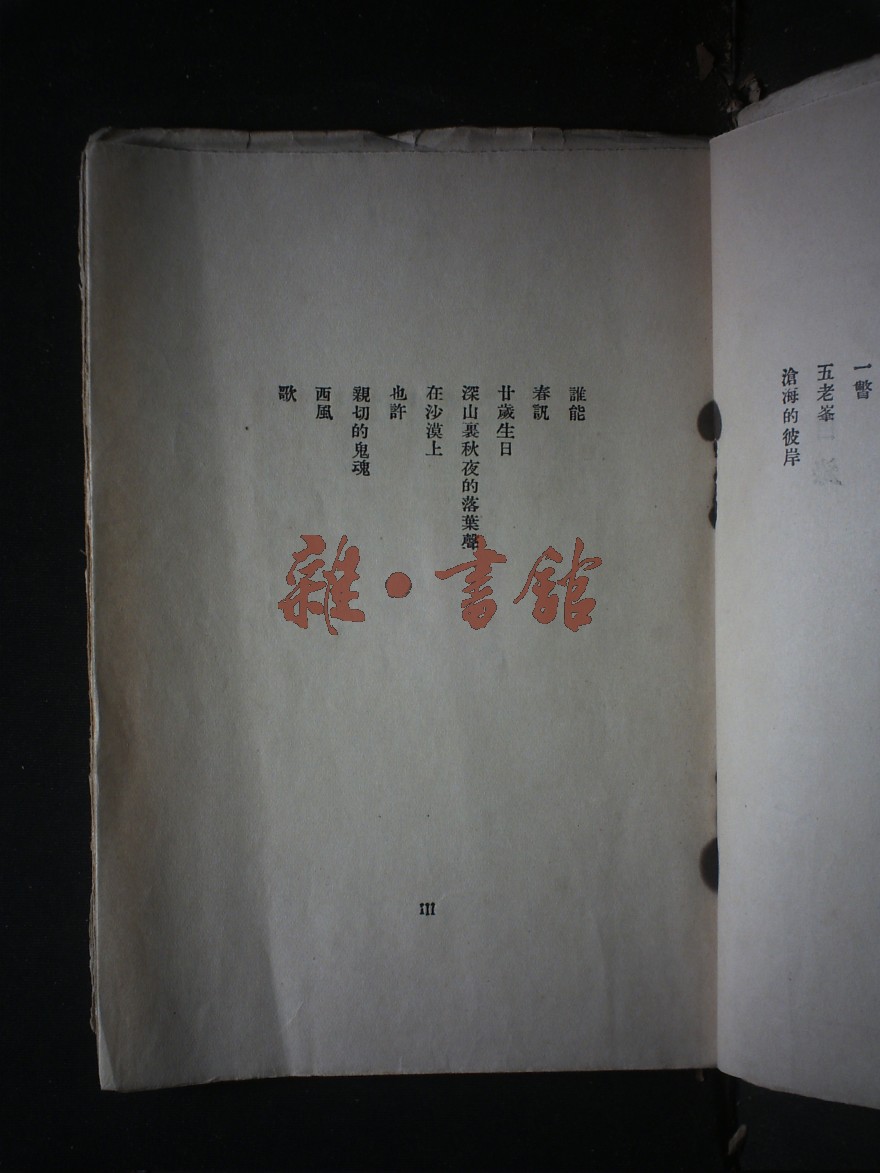 一瞥
五老峯
滄海的彼岸
誰能
春訊
廿歲生日
深山裏秋夜的落葉聲
在沙漠上
也許
親切的鬼魂
西風
歌
雜·書館
III